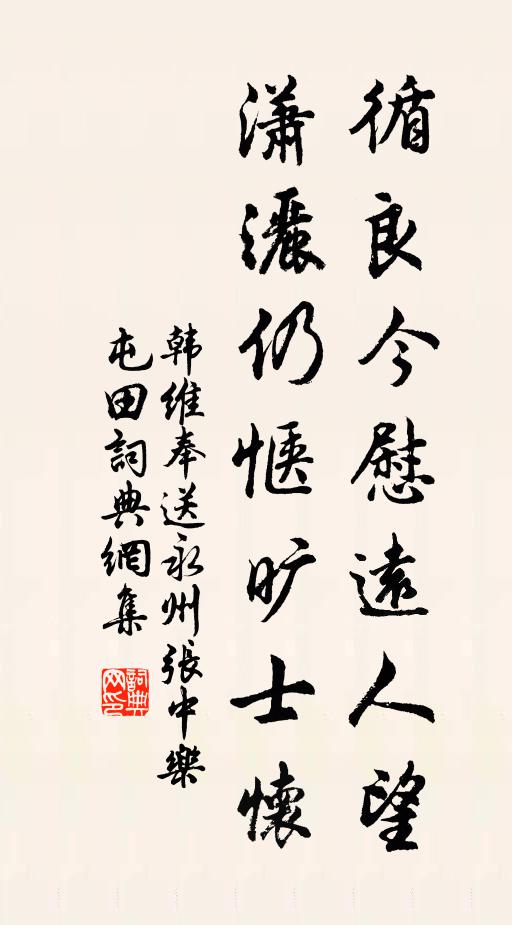 循良今慰遠人望
瀟灑仍惬旷士懷
韩維奉送永州張中樂
屯田詞典網集
詞典网印